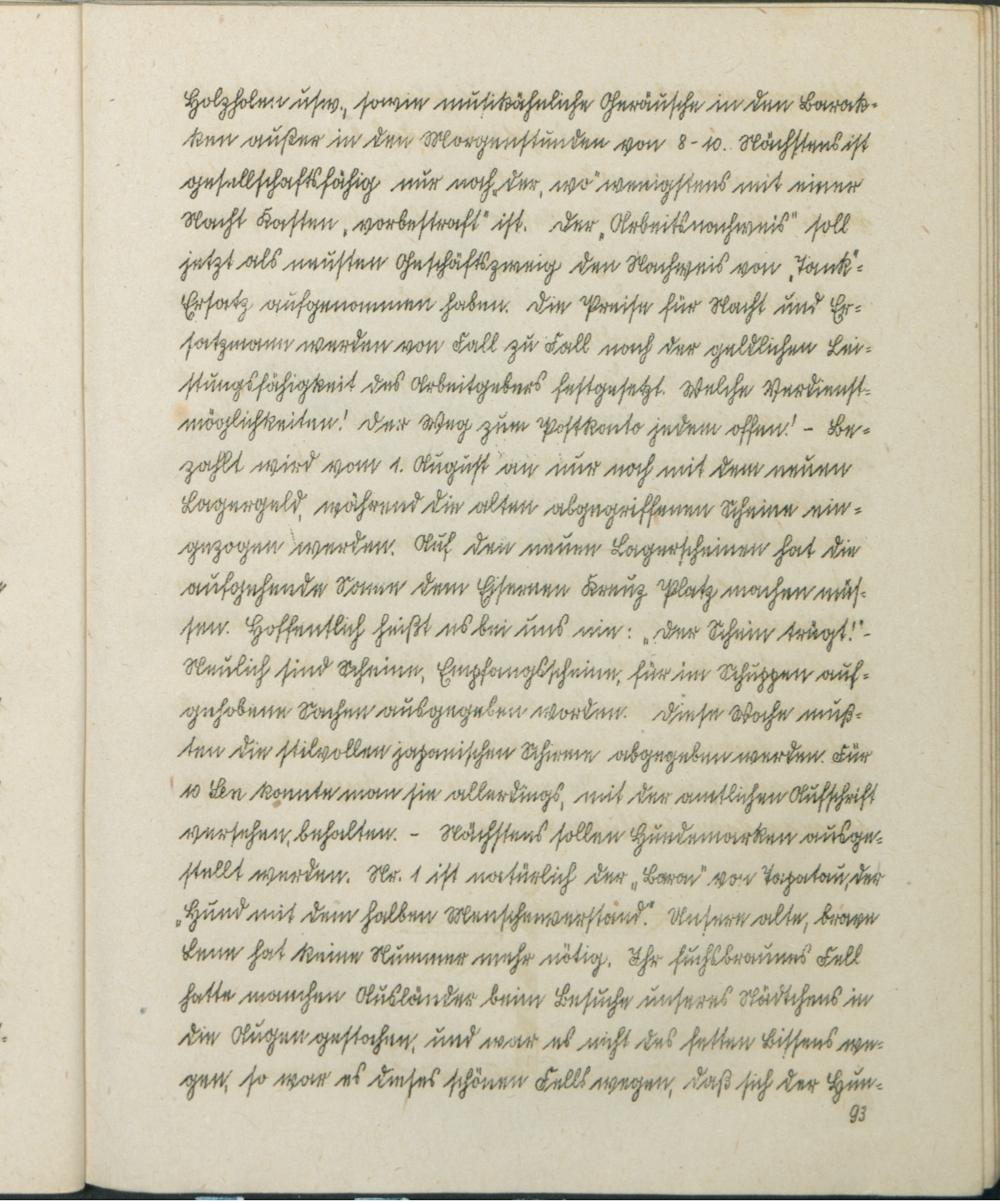 Holzholen usw., sowie musikähnliche Geräusche in den Barak-
ken außer in den Morgenstunden von 8-10. Nächstens ist
gesellschaftsfähig nur noch „der, wo“ wenigstens mit einer
Nacht Kasten „vorbestraft“ ist. Der „Arbeitsnachweis“ soll
jetzt als neusten Geschäftszweig den Nachweis von „Tank“-
Ersatz aufgenommen haben. Die Preise für Nacht und Er-
satzmann werden von Fall zu Fall nach der geldlichen Lei-
stungsfähigkeit des Arbeitgebers festgesetzt. Welche Verdienst-
möglichkeiten! Der Weg zum Postkonto jedem offen! - Be-
zahlt wird vom 1. August an nur noch mit dem neuen
Lagergeld, während die alten abgegriffenen Scheine ein-
gezogen werden. Auf den neuen Lagerscheinen hat die
aufgehende Sonne dem Eisernen Kreuz Platz machen müs-
sen. Hoffentlich heißt es bei uns nie: „Der Schein trügt!“ -
Neulich sind Scheine, Empfangsscheine, für im Schuppen auf-
gehobene Sachen ausgegeben worden. Diese Woche muß-
ten die stilvollen japanischen Schirme abgegeben werden. Für
10 Sen konnte man sie allerdings, mit der amtlichen Aufschrift
versehen, behalten. - Nächstens sollen Hundemarken ausge-
stellt werden. Nr. 1 ist natürlich der „Baron“ von Tapatau, der
„Hund mit dem halben Menschenverstand.“ Unsere alte, brave
Lene hat keine Nummer mehr nötig. Ihr fuchsbraunes Fell
hatte manchen Ausländer beim Besuche unseres Städtchens in
die Augen gestochen, und war es nicht des fetten Bissens we-
gen, so war es dieses schönen Fells wegen, daß sich der Hun-
93